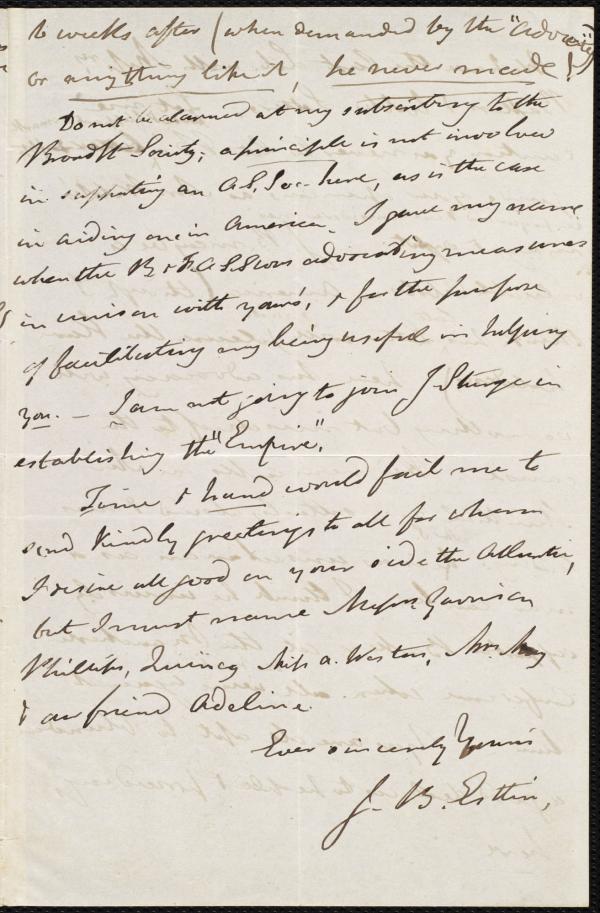 6 weeks after (when demanded by the "Advocate")
or anything like it, he never made!
Do not be alarmed at my subscribing to the
Broad St Society; a principle is not involved
in supporting an A.S. Soc. here, as is the case
in aiding one in America. I gave my name
when the B & F. A S S was advocating measures
in unison with yours, & for the purpose
of facilitating my being useful in helping
you. — I am not going to join J Sturge in
establishing the "Empire".
Time & hand would fail me to
send kindly greetings to all for whom
I desire all good on your side the Atlantic,
but I must name Messrs Garrison
Phillips, Quincy Miss A. Weston, Mrs. May
& our friend Adeline.
Ever sincerely Yours
J. B. Estlin,